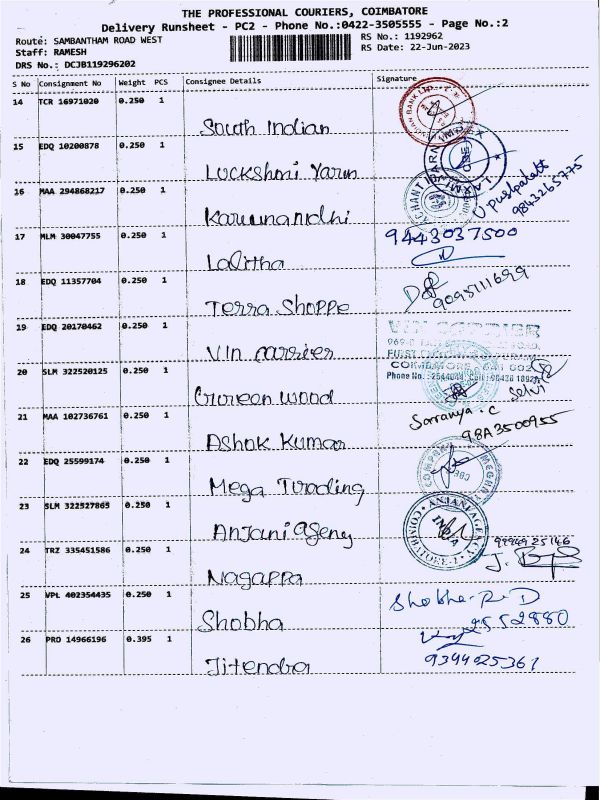 THE PROFESSIONAL COURIERS, COIMBATORE
Delivery Runsheet - PC2 - Phone No.:0422-3505555 - Page No.:2
Route: SAMBANTHAM ROAD WEST RS No.: 1192962
Staff: RAMESH RS Date: 22-Jun-2023
DRS No.: DCJB119296202
S No Consignment No Weight PCS Consignee Details Signature
14 TCR 16971020 0.250 1
South Indian
15 EDQ 10200878 0.250 1
Luckshmi Yarun
16 MAA 294868217 0.250 1
Karuunanidhi
U Pushpalatt
9843265775
17 MLM 30047755 0.250 1 9443037500
Lalitha
18 EDQ 11357704 0.250 1
Terra Shoppe 9095111699
19 EDQ 20170462 0.250 1
Vin carrier VIN CARRIER
20 SLM 322520125 0.250 1 COIMBATORE
Wood Selvi
21 MAA 102736761 0.250 1 Saranya.C
Ashok Kumar 98A3500955
22 EDQ 25599174 0.250 1
Mega Truading
23 SLM 322527865 0.250 1
Anjani Ageny ANJANI AGENCY
24 TRZ 335451586 0.250 1
Nagappa
25 VPL 402354435 0.250 1 Shobha. R. D
Shobha 2552880
26 PRO 14966196 0.395 1
Jitendra 9344025361